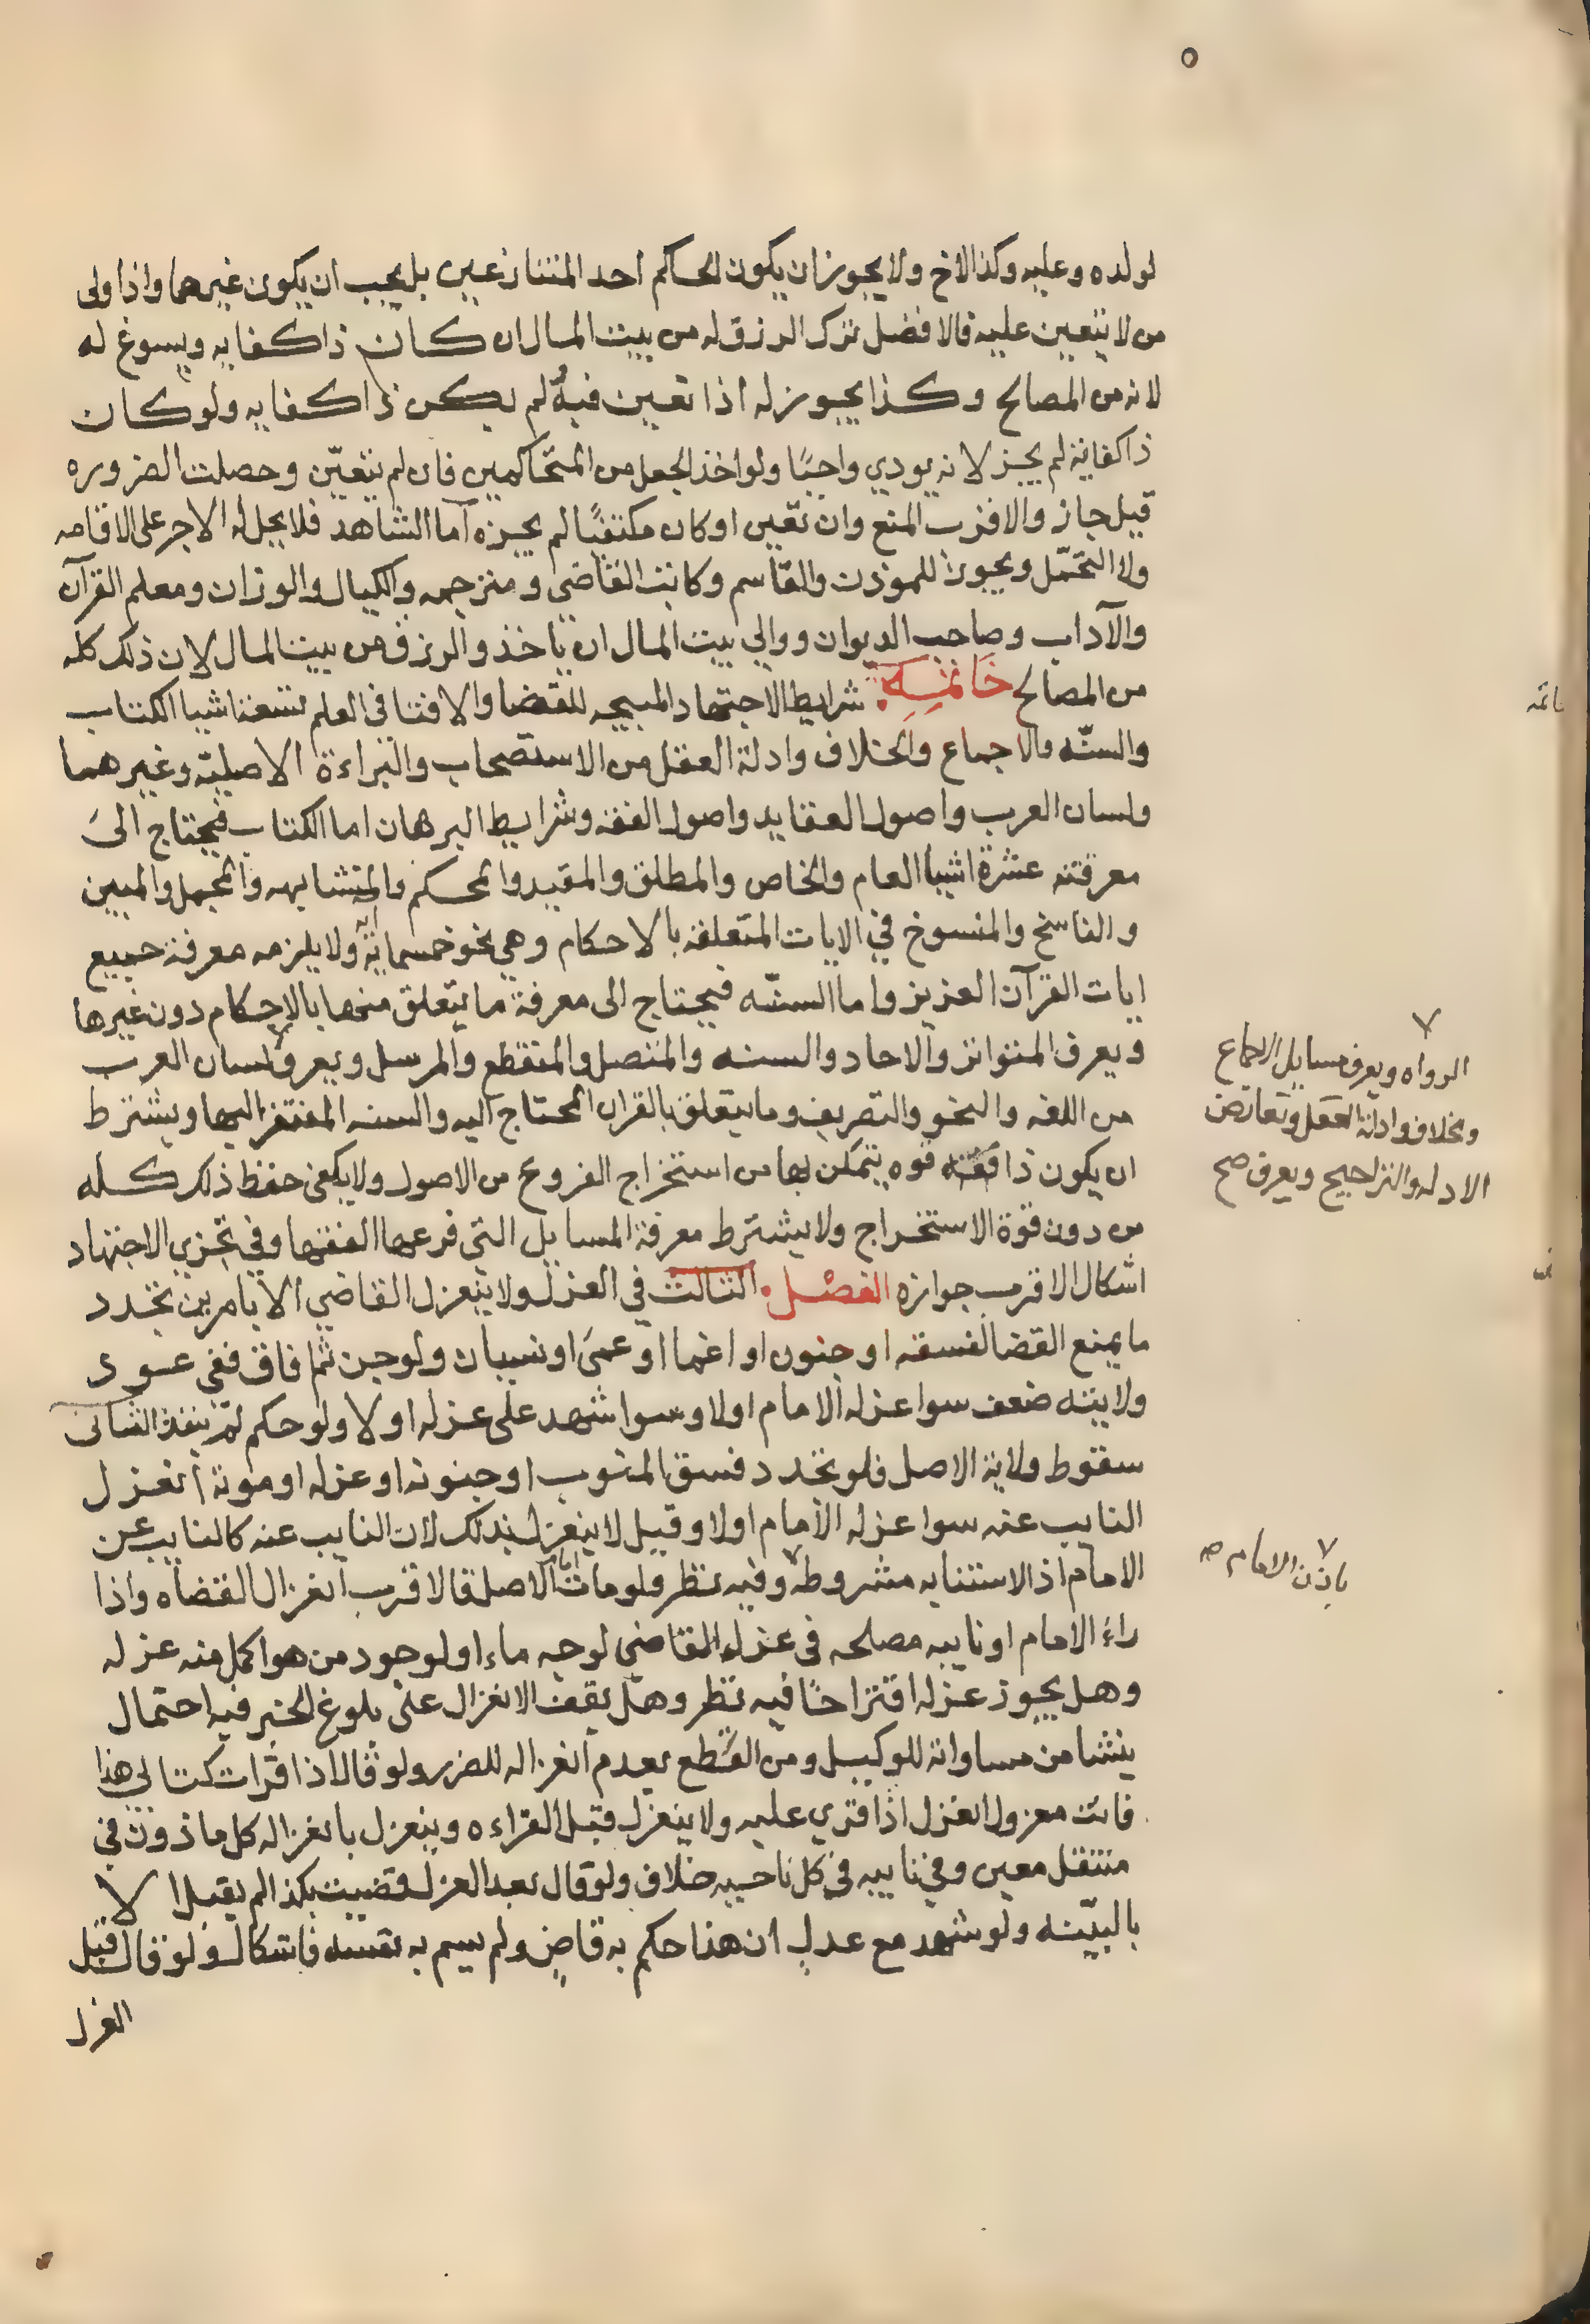 لولده وعليه وكذا الاخ ولا يجوز ان يكون الحاكم احد المتنازعين بل يجب ان يكون غيرهما واذا ولى
من لا يتعين عليه فالافضل ترك الرزق له من بيت المال ان كان ذا كفايه ويسوغ له
لانه من المصالح وكذا يجوز له اذا تعين فيه ولم يكن ذا كفايه ولو كان
ذا كفاية لم يجز لانه يودي واجبًا ولو اخذ الجعل من المتحاكمين فان لم يتعيّن وحصلت الضروره
قيل جاز والاقرب المنع وان تعّين او كان مكتفيًا لم يجزه اما الشاهد فلا يحل له الاجر على الاقامه
ولا التحمّل ويجوز للموذن والقاسم وكاتب القاضي ومترجمه والكيال والوزان ومعلم القرآن
والآداب وصاحب الديوان ووالي بيت المال ان ياخذوا الرزق من بيت المال لان ذلك كله
من المصالح خاتمة شرايط الاجتهاد المبيحه للقضا والافتا في العلم تسعة اشيا الكتاب
والسنّه والاجماع والخلاف وادلة العقل من الاستصحاب والبراءة الاصليّة وغيرهما
ولسان العرب واصول العقايد واصول الفقه وشرايط البرهان اما الكتاب فيحتاج الى
معرفته عشرة اشيا العام والخاص والمطلق والمقيد والمحكم والمتشابهه والمجمل والمبين
والناسخ والمنسوخ في الايات المتعلقه بالاحكام وهي نحو خمسماية اية ولا يلزمه معرفة جميع
ايات القرآن العزيز واما السنّه فيحتاج الى معرفة ما يتعلق منها بالاحكام دون غيرها
ويعرف المتواتر والاحاد والسنه والمتصل والمنقطع والمرسل ويعرف لسان العرب
من اللغه والنحو والتصريف وما يتعلق بالقران المحتاج اليه والسنه المفتقر اليها ويشترط
ان يكون ذا قوه يتمكن بها من استخراج الفروع من الاصول ولا يكفي حفظ ذلك كله
من دون قوة الاستخراج ولا يشترط معرفة المسايل التي فرعها الفقها وفي تجزي الاجتهاد
اشكال الاقرب جوازه الفصل الثالث في العزل ولا ينعزل القاضي الا بامرين تجدد
ما يمنع القضا لفسقه او جنون او اغما او عمى او نسيان ولو جن ثم افاق ففي عود
ولايته ضعف سوا عزله الامام اولا وسوا شهد على عزله او لا ولو حكم لم ينفذ الثاني
سقوط ولاية الاصل فلو تجدد فسق المنوب او جنونه او عزله او موته انعزل
النايب عنه سوا عزله الامام اولا وقيل لا ينعزل بذلك لان النايب عنه كالنايب عن
الامام اذ الاستنابه مشروطه وفيه نظر فلو مات امام الاصل فالاقرب انعزال القضاه واذا
راى الامام او نايبه مصلحه في عزله القاضي لوجه ماء او لوجود من هو اكمل منه عزله
وهل يجوز عزله اقتراحًا فيه نظر وهل يقف الانعزال على بلوغ الخبر فيه احتمال
ينشا من مساواته للوكيل ومن القطع بعدم انعزاله للضرر ولو قال اذا قرات كتابي هذا
فانت معزول انعزل اذا قري عليه ولا ينعزل قبل القراءه وينعزل بانعزاله كل ماذون في
منتقل معين وفي نايبه في كل ناحيه خلاف ولو قال بعد العزل قضيت بكذا لم يقبل الا
بالبيّنه ولو شهد مع عدل ان هذا حكم به قاضٍ ولم يسم به نفسه فاشكال ولو قال قبل
العزل
الرواه ويعرف مسايل الاجماع
وبخلاف وادلة العقل وتعارض
الادله والتراجيح ويعرف صح
باذن الامام صح